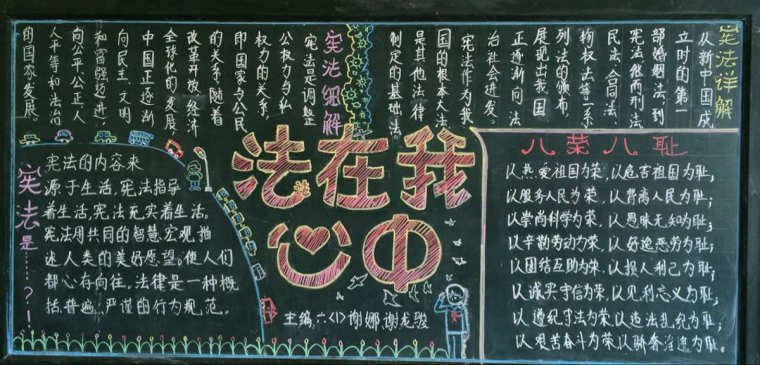 宪法详解
从新中国成
立时的第一
部婚姻法,到
宪法继而刑法
民法、合同法、
物权法等一系
列法的颁布,
展现出我国
正逐渐向法
治社会进发。
宪法作为我
国的根本大法
是其他法律
制定的基础法。
宪法细解
宪法是调整
公权力与私
权力的关系,
即国家与公民
的关系,随着
改革开放,经济
全球化的发展
中国正逐渐
向民主、文明
和富强迈进;
向公平、公正人
人平等和法治
的国家发展.
法在我
心中
八荣八耻
以热爱祖国为荣,以危害祖国为耻;
以服务人民为荣,以背离人民为耻;
以崇尚科学为荣,以愚昧无知为耻;
以辛勤劳动为荣,以好逸恶劳为耻;
以团结互助为荣,以损人利己为耻;
以诚实守信为荣,以见利忘义为耻;
以遵纪守法为荣,以违法乱纪为耻;
以艰苦奋斗为荣,以骄奢淫逸为耻。
宪法是……?!
宪法的内容来
源于生活,宪法指导
着生活,宪法充实着生活。
宪法用共同的智慧,宏观描
述人类的美好愿望。使人们
都心存向往,法律是一种概
括、普遍、严谨的行为规范。
主编:六(1)谢娜 谢龙骏